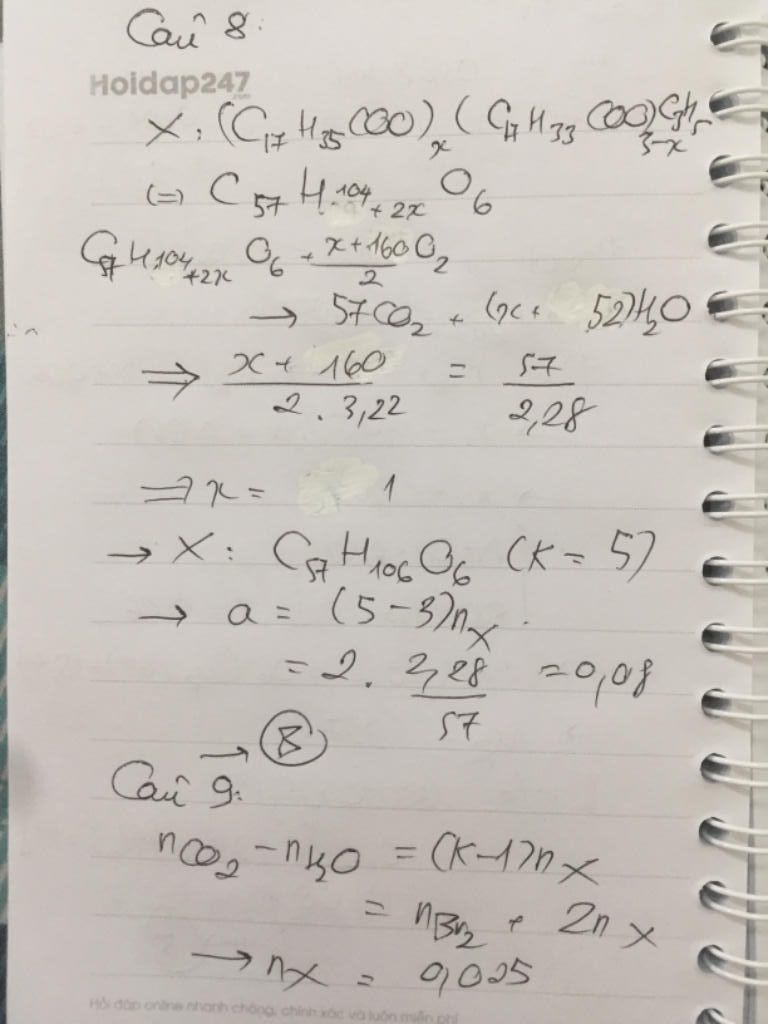 Câu 8:
Hoidap247
.com
X: (C₁₇H₃₅COO)ₓ(C₁₇H₃₃COO)₃₋ₓC₃H₅
(=) C₅₇H₁₀₄₊₂ₓO₆
C₅₇H₁₀₄₊₂ₓO₆ + (x+160)/2 O₂
→ 57CO₂ + (x+ 52)H₂O
⇒ (x + 160)/(2 . 3,22) = 57/2,28
⇒ x = 1
→ X: C₅₇H₁₀₆O₆ (K = 5)
→ a = (5 - 3)nₓ.
= 2. 2,28/57 = 0,08
→ B
Câu 9:
nCO₂ - nH₂O = (K-1)nₓ
= nBr₂ + 2nₓ
→ nₓ = 0,025
Hỏi đáp online nhanh chóng, chính xác và luôn miễn phí